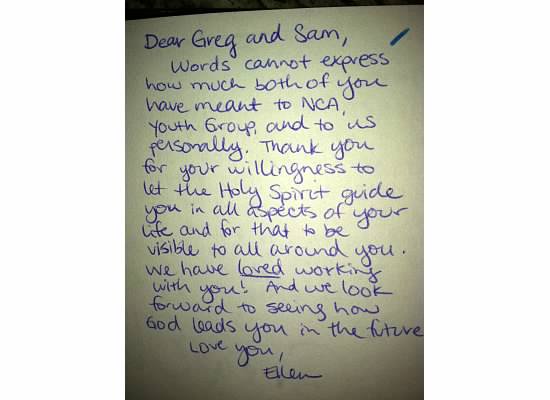 Dear Greg and Sam,
Words cannot express
how much both of you
have meant to NCA,
Youth Group, and to us
personally. Thank you
for your willingness to
let the Holy Spirit guide
you in all aspects of your
life and for that to be
visible to all around you.
We have loved working
with you! And we look
forward to seeing how
God leads you in the future
Love you,
Eilen